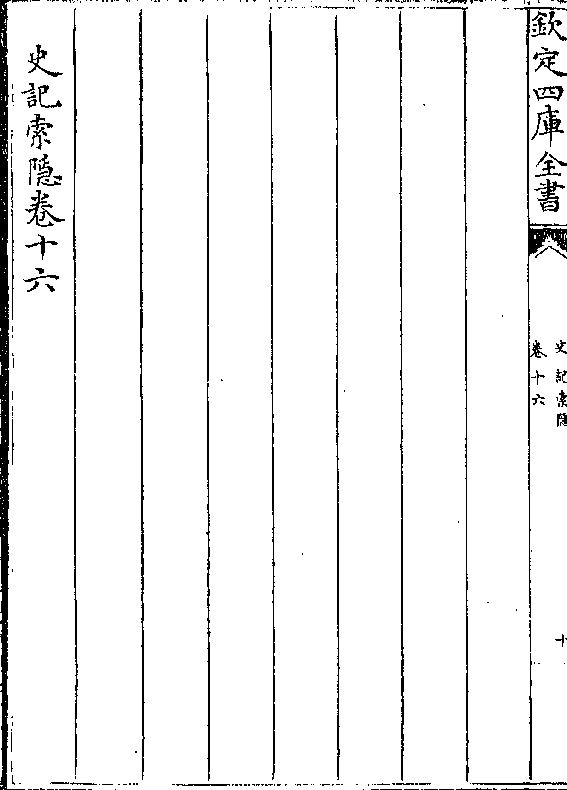 欽定四庫全書
史記索隱
卷十六
十
史記索隱卷十六